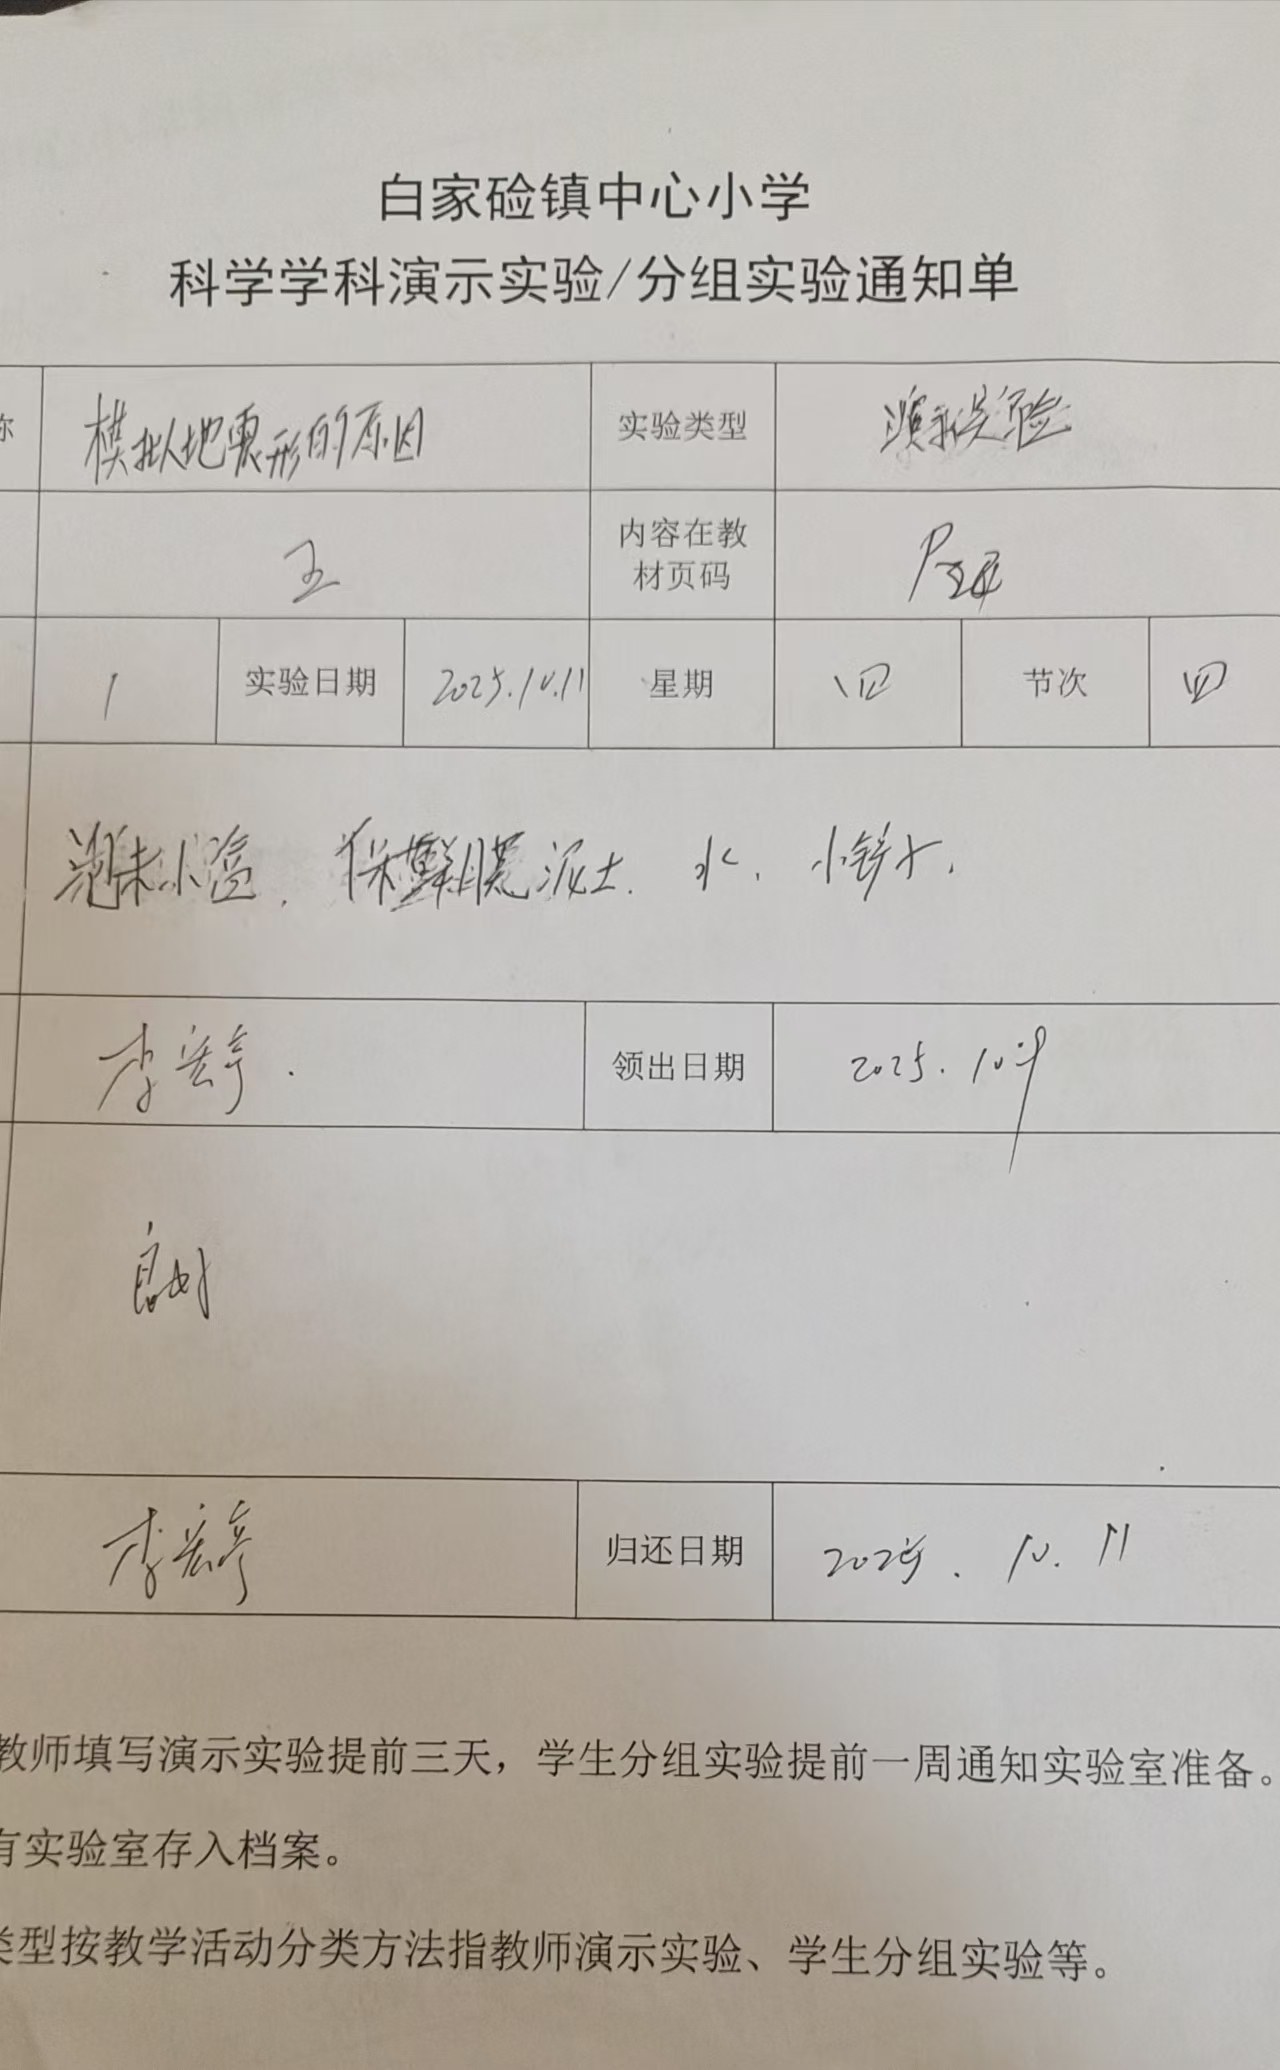 白家硷镇中心小学
科学学科演示实验/分组实验通知单
称 模拟地震形的原因 实验类型 演示实验
五 内容在教
材页码 P
1 实验日期 2025.10.11 星期 四 节次 四
小盆. 保鲜膜 泥土. 水. 小铲子.
李宏亭. 领出日期 2025.10.9
良好
李宏亭 归还日期 2025.10.11
教师填写演示实验提前三天，学生分组实验提前一周通知实验室准备。
有实验室存入档案。
类型按教学活动分类方法指教师演示实验、学生分组实验等。